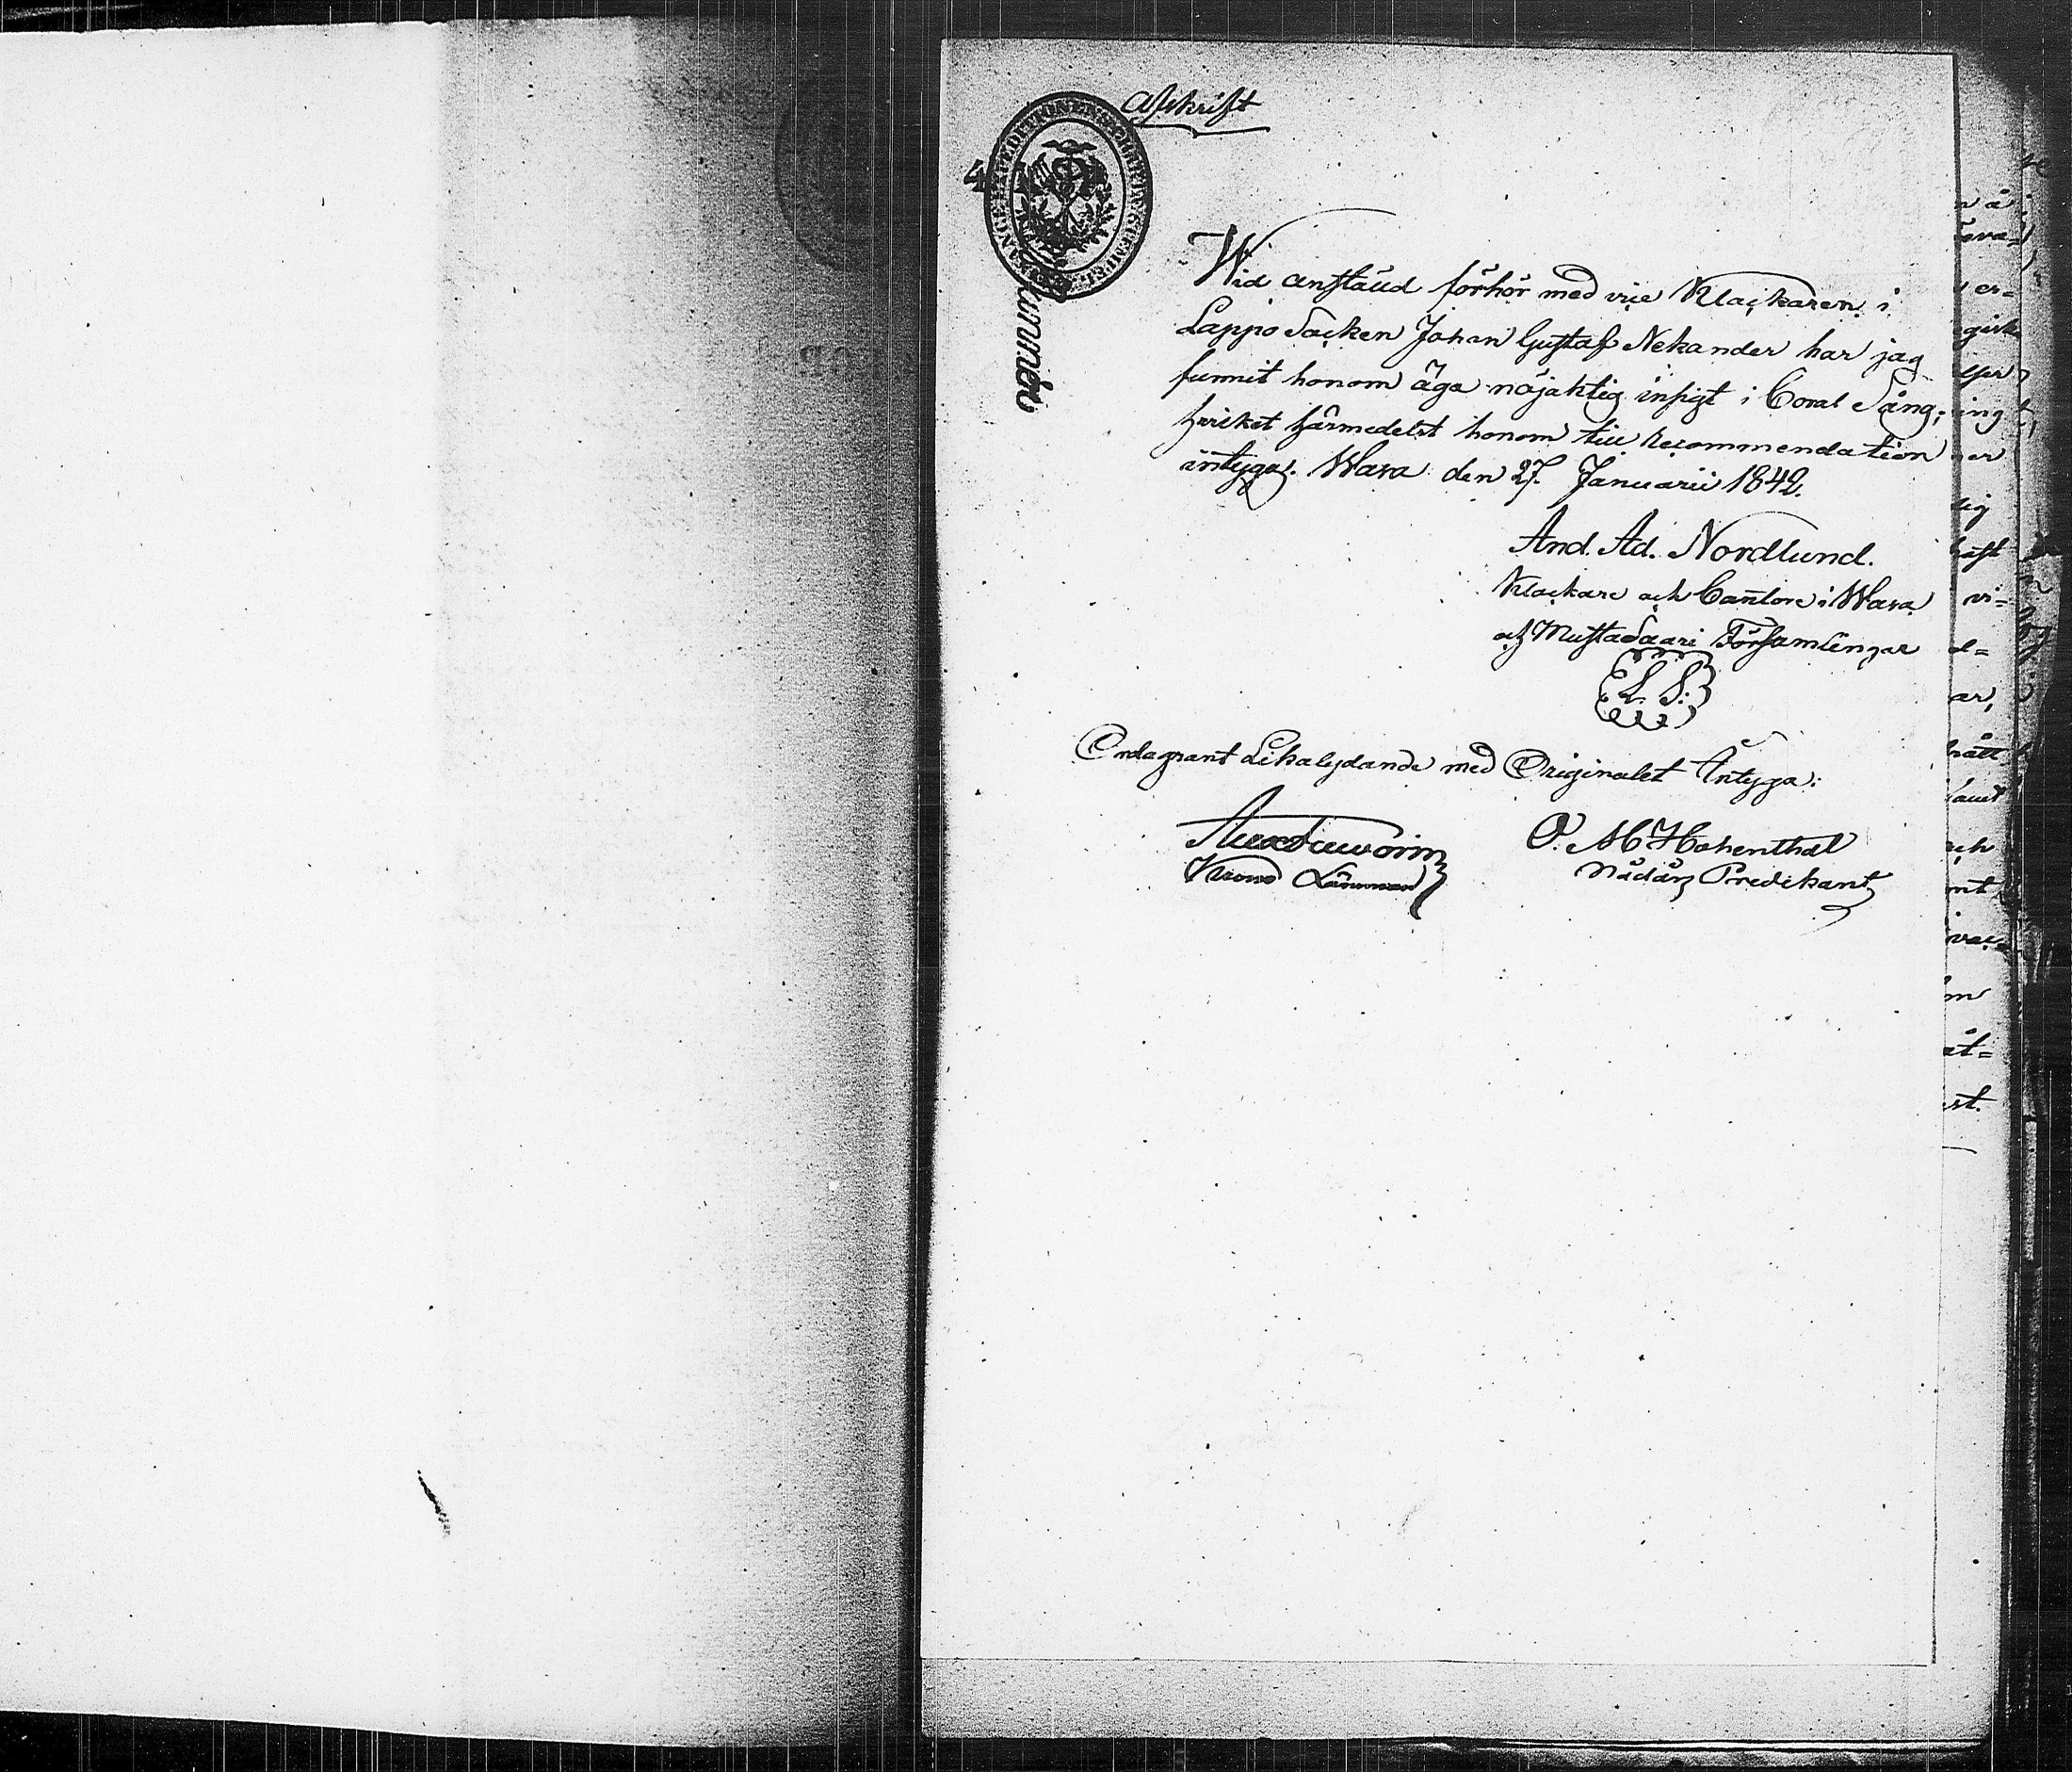 Afskrift
4
Wid anstäld förhör med vice Klåckaren i
Lappo Sacken Johan Gustaf Nekander har jag
funnit honom äga nöjaktig insigt i Coral Sång;
hvilket härmedelst honom till recommendation
intygas. Wasa den 27. Januarii 1842.
And. Ad. Nordlund.
Klackare och Cantor i Wasa
och Mustasaari Församlingar
L. S.
Ordagrant Likalydande med Originalet Intyga:
O. M Hohenthal
Krono Länsman
Nådårs Predikant